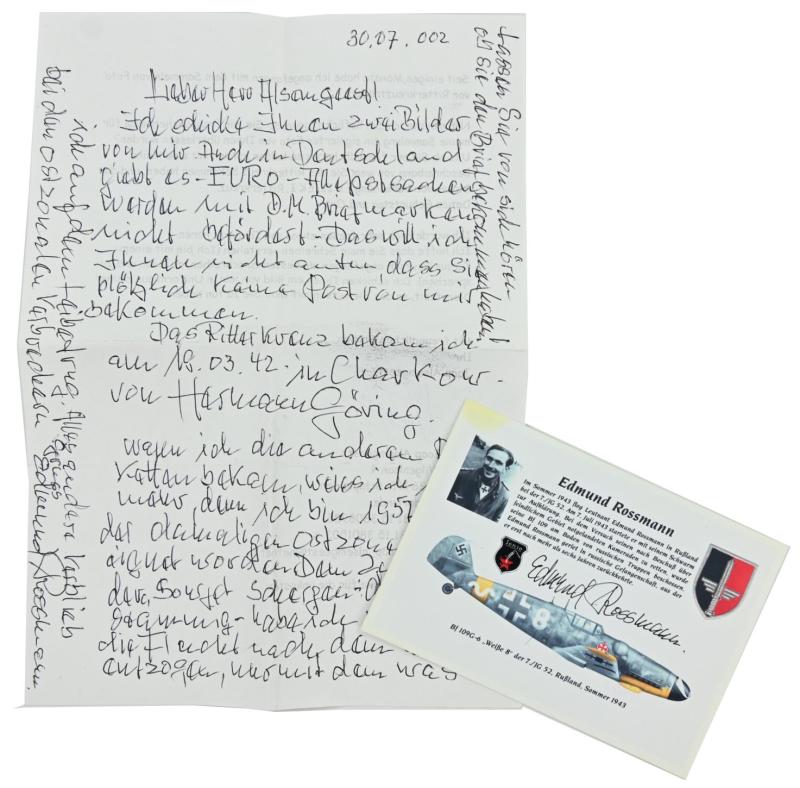 30.07.002
Lieber Herr
Ich schicke Ihnen zwei Bilder
von mir. Auch in Deutschland
giebt es - EURO -
werden mit D.M. Briefmarken
nicht befördert - Das will ich
Ihnen nicht antun dass Sie
plötzlich keine Post von mir
bekommen.
Das Ritterkreuz bekam ich
am 19.03.42. in Charkow -
von Hermann Göring.
wegen ich die anderen
bekam, weiss ich
mehr, denn ich bin 195
der damaligen Ostzone
worden
Sowjet Schergen -
habe ich
die Flucht nach dem
entzogen, nur mit dem was
ich auf dem Leibe trug. Alles andere verblieb
bei den ostzonalen Verbrechern Edmund Rossmann.
Lassen Sie von sich hören
ob Sie den Brief bekommen haben
Edmund Rossmann
Im Sommer 1943 flog Leutnant Edmund Rossmann in Rußland
bei der 7./JG 52. Am 7. Juli 1943 startete er mit seinem Schwarm
zur Aufklärung. Bei dem Versuch seinen nach Beschuß über
feindlichem Gebiet notgelandeten Kameraden zu retten, wurde
seine Bf 109 am Boden von russischen Truppen beschossen.
Edmund Rossmann geriet in russische Gefangenschaft, aus der
er erst nach mehr als sechs Jahren zurückkehrte.
Edmund Rossmann.
8
Bf 109G-6 „Weiße 8" der 7./JG 52, Rußland, Sommer 1943